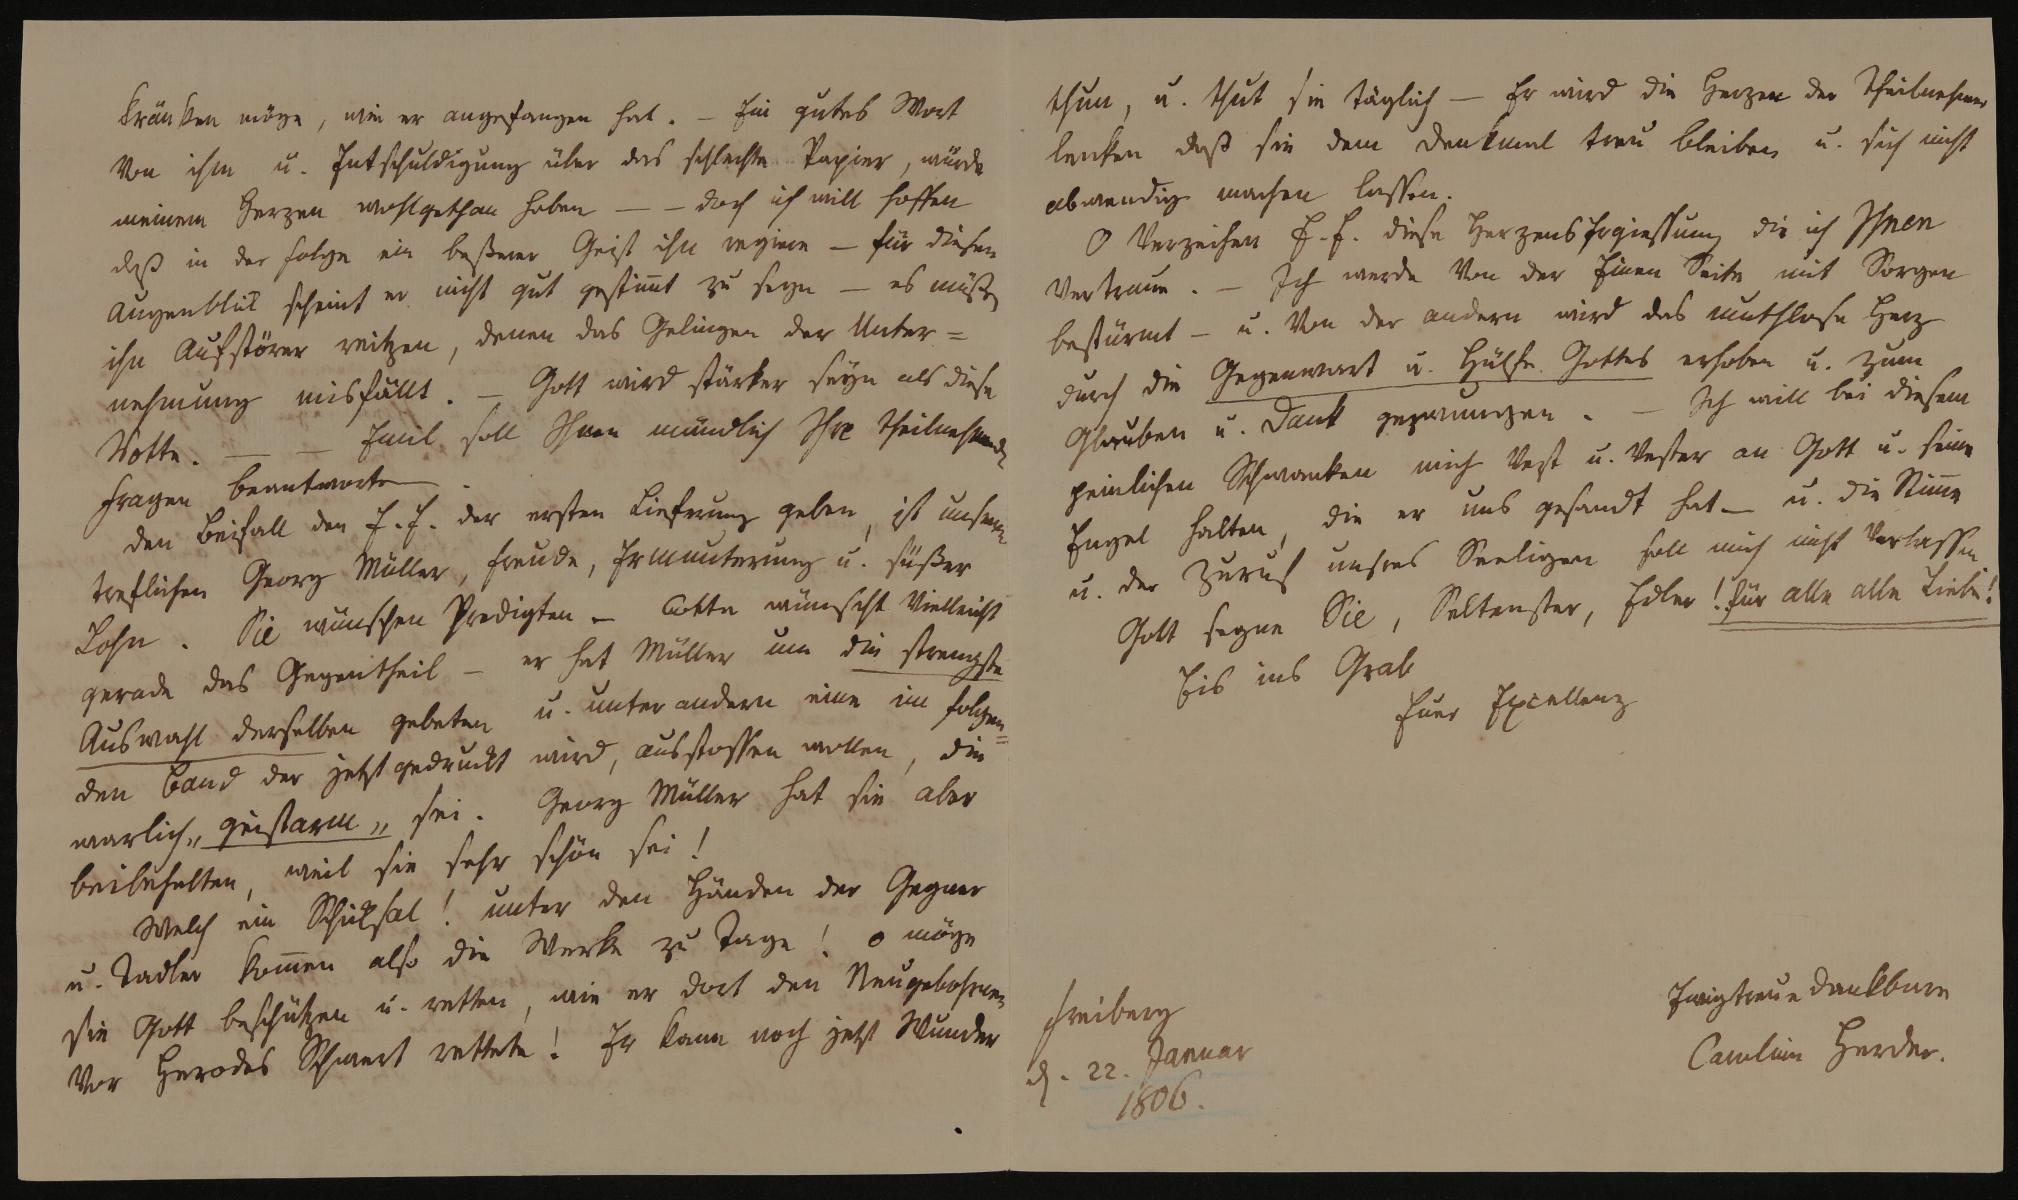 kränken möge, wie er angefangen hat. – Ein gutes Wort
von ihm u. Entschuldigung über das schlechte Papier, würde
meinem Herzen wohlgethan haben – – doch ich will hoffen
daß in der Folge ein beßerer Geist ihn regiere – für diesen
Augenblik scheint er nicht gut gestim̅t zu seyn – es müßen
ihn Aufstörer reitzen, denen das Gelingen der Unter=
nehmung misfällt. – Gott wird stärker seyn als diese
Rotte. – – Emil soll Ihnen mündlich Ihre theilnehmende
Fragen beantworten.
Den Beifall den E. E. der ersten Lieferung geben, ist unserm
treflichen Georg Müller, Freude, Ermunterung u. süßer
Lohn. Sie wünschen Predigten – Cotta wünscht vielleicht
gerade das Gegentheil – er hat Müller um die strengste
Auswahl derselben gebeten u. unter andern eine im folgen=
den Band der jetzt gedruckt wird, ausstossen wollen, die
warlich „geistarm„ sei. Georg Müller hat sie aber
beibehalten, weil sie sehr schön sei!
Welch ein Schiksal! unter den Händen der Gegner
u. Tadler kom̅en also die Werke zu Tage! o möge
sie Gott beschützen u. retten, wie er dort den Neugebohrnen
vor Herodes Schwert rettete! Er kann noch jetzt Wunder
thun, u. thut sie täglich – Er wird die Herzen der Theilnehmer
lenken daß sie dem Denkmal treu bleiben u. sich nicht
abwendig machen lassen.
O verzeihen E. E. diese Herzensergiessung die ich Ihnen
vertraue. – Ich werde von der Einen Seite mit Sorgen
bestürmt – u. von der andern wird das muthlose Herz
durch die Gegenwart u. Hülfe Gottes erhoben u. zum
Glauben u. Dank gezwungen. – Ich will bei diesem
peinlichen Schwanken mich vest u. vester an Gott u. seine
Engel halten, die er uns gesandt hat – u. die Stim̅e
u. der Zuruf unsres Seeligen soll mich nicht verlassen.
Gott segne Sie, Seltenster, Edler! für alle alle Liebe!
Bis ins Grab
Euer Excellenz
Ewigtreue dankbare
Caroline Herder.
Freiberg
d. 22. Januar
1806.